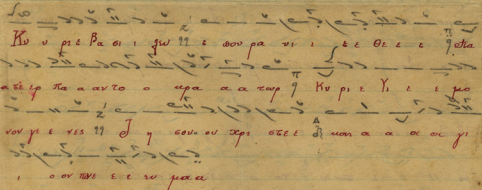 Κυ υ ρι ε Βα σι λευ ε που ρα νι ι ε ε Θε ε ε Πα
α τε ερ πα α αν το ο κρα α α τωρ Κυ ρι ε Υι ε ε μο
νο γε ε νες Ι η σου ου χρι στε ε και α α α α γι
ι ο ον πνε ε ε υ μα α